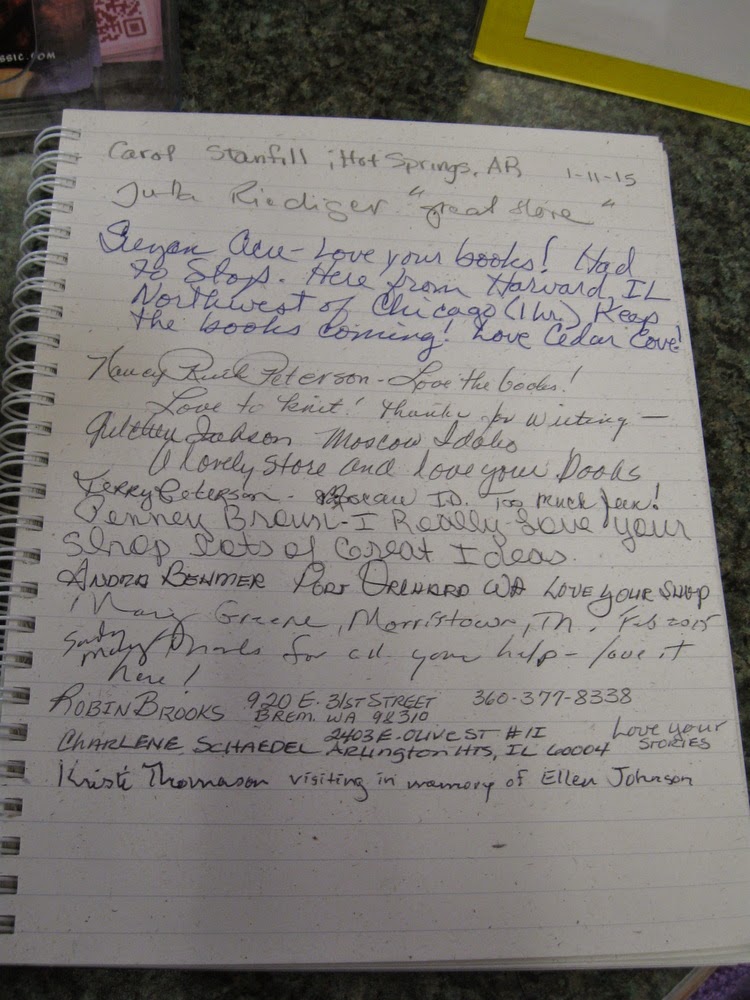 SSIC.COM
Carol Stanfill ; Hot Springs, AR 1-11-15
Julia Riediger "great store"
Love your books! Had
to Stop. Here from Harvard IL
Northwest of Chicago (1 hr.) Keep
the books coming! Love Cedar Cove!
Nancy Peterson - Love the books!
Love to knit! Thanks for writing -
Moscow Idaho
A lovely store and love your books
Terry Peterson - Moscow ID. Too much fun!
Penney Braun - I Really Love your
Shop Lots of Great Ideas.
ANDRA BEWMER PORT ORCHARD WA LOVE YOUR SHOP
Mary Greene, Morristown, Tn. Feb 2015
thanks for all your help - love it
here!
ROBIN BROOKS 920 E. 31ST STREET 360-377-8338
BREM. WA 98310
2403 E. OLIVE ST #1I Love your
CHARLENE SCHAEDEL ARLINGTON HTS, IL 60004 STORIES
Kristi Thomason visiting in memory of Ellen Johnson